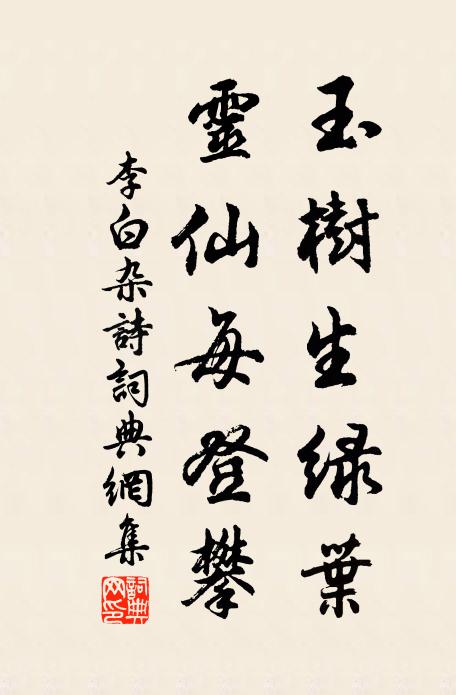 玉樹生綠葉
靈仙每登攀
李白杂詩詞典網集
詞典网印